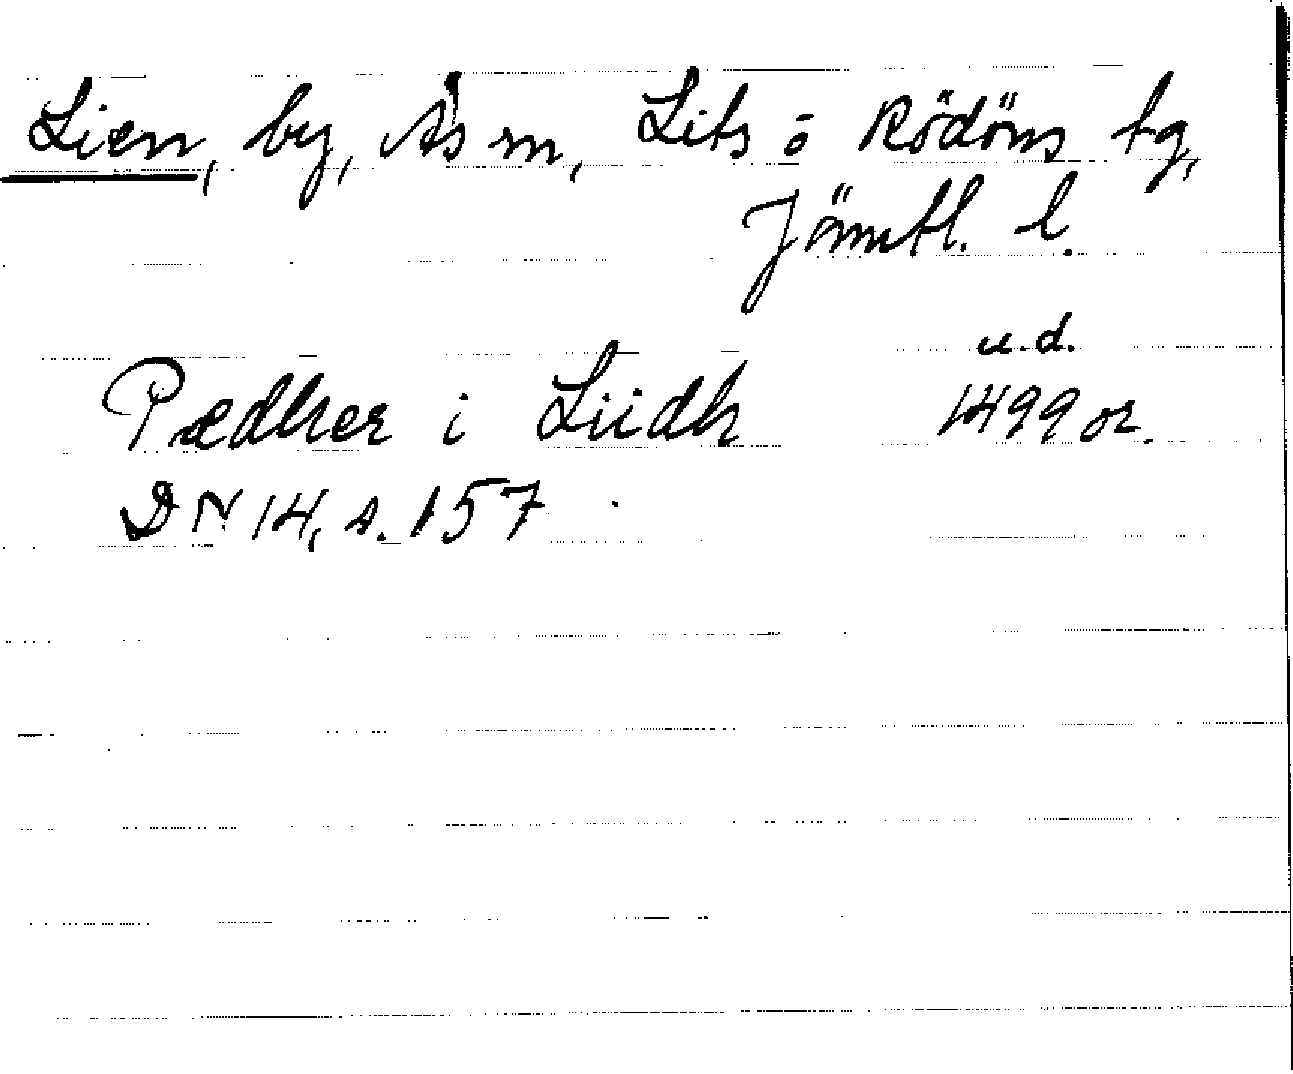 Lien, by, Ås sn, Lits o Rödöns tg,
Jämtl. l.
u.d.
Pædher i Liidh 1499 or.
DN 14, s. 157